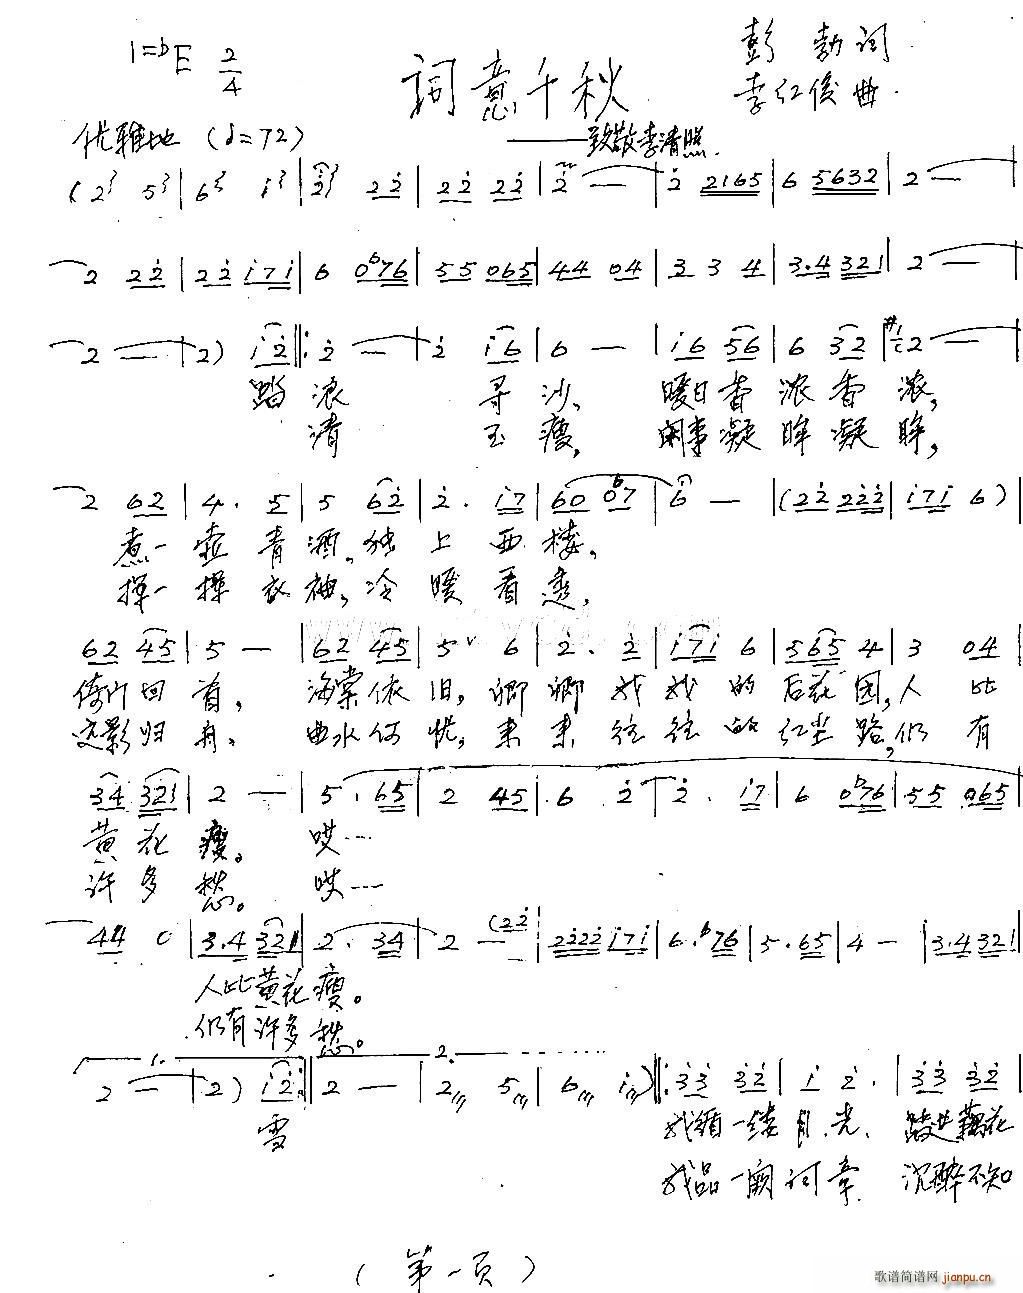 1=♭E 2/4
词意千秋
彭勃词
李红俊曲
优雅地 (♩=72)
——致敬李清照
(2 5 | 6 i | 2̇ 2 2̇ | 2 2̇ 2 2̇ | 2̇ — | 2̇ 2165 | 6 5632 | 2 — |
2 2 2̇ | 2 2̇ i7i | 6 0♭76 | 55 065 | 44 04 | 3 3 4 | 3.4 321 | 2 — |
2 — | 2) i2̇ ‖: 2̇ — | 2̇ i6 | 6 — | i6 56 | 6 32 | 2 — |
踏浪 寻沙, 暖日香浓香浓,
清 玉瘦, 闲事凝眸凝眸,
2 62 | 4. 5 | 5 62̇ | 2̇. i7 | 60 0♭7 | 6 — | (22̇ 22̇2̇ | i7i 6) |
煮一壶青酒,独上西楼,
挥一挥衣袖,冷暖看透,
62 45 | 5 — | 62 45 | 5 ˅ 6 | 2̇. 2̇ | i7i 6 | 565 4 | 3 04 |
倚门回首, 海棠依旧,卿卿我我的后花园,人比
疏影归舟, 曲水何忧,来来往往的红尘路,仍有
34 321 | 2 — | 5. 65 | 2 45 | 6 2̇ | 2̇. i7 | 6 0♭76 | 55 065 |
黄花瘦。 哎…
许多愁。 哎…
44 0 | 3.4 321 | 2. 34 | 2 — (22̇ | 2̇2̇2̇2̇ i7i | 6. ♭76 | 5. 65 | 4 — | 3.4 321 |
人比黄花瘦。
仍有许多愁。
1. 2.
2 — | 2) i2̇ :‖ 2 — | 2 5 | 6 i) ‖: 3̇3̇ 3̇2̇ | i 2̇. | 3̇3̇ 3̇2̇ |
雪 我循一缕月光, 踱进藕花
我品一阕词章 沉醉不知
(第一页)
歌谱简谱网 jianpu.cn